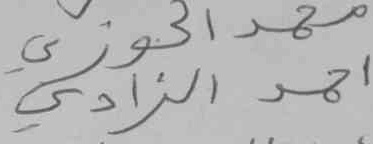 محمد الحوزي
احمد الزادي